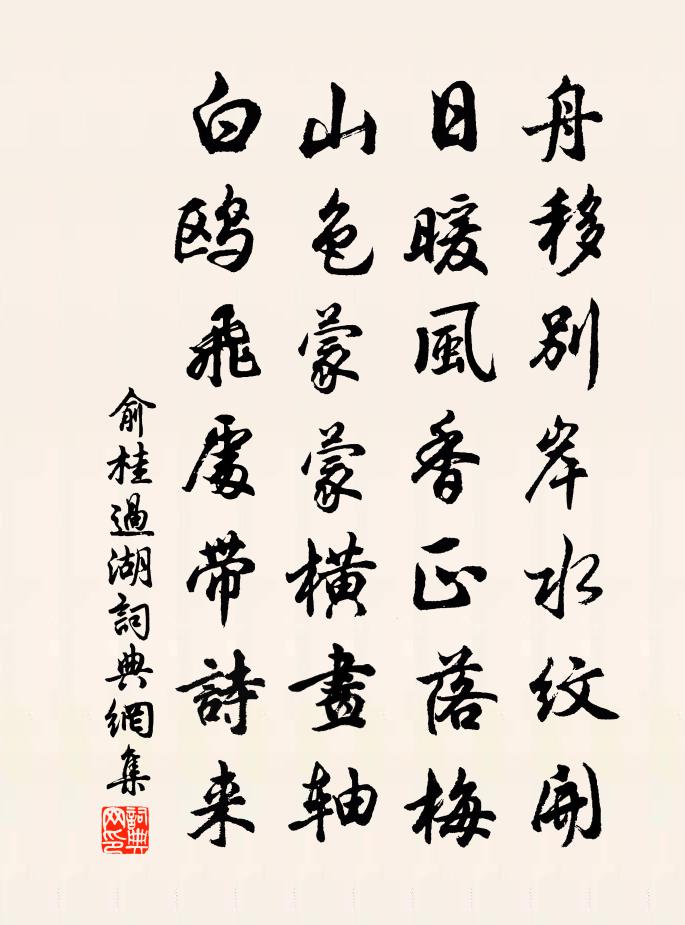 舟移別岸水紋開
日暖風香正落梅
山色蒙蒙橫畫軸
白鸥飛處帶詩来
俞桂過湖詞典網集
詞典網印